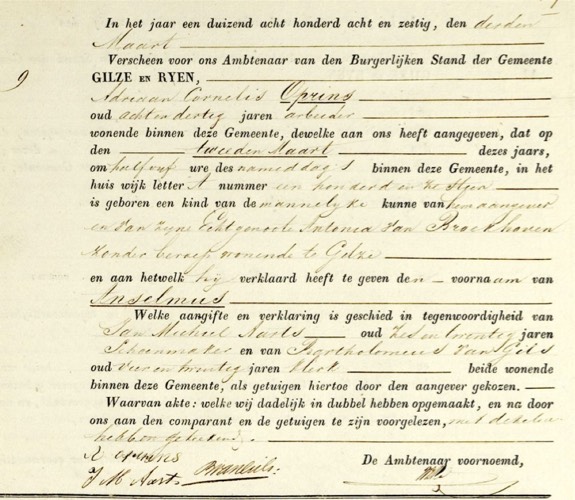 In het jaar een duizend acht honderd acht en zestig, den derden
Maart
Verscheen voor ons Ambtenaar van den Burgerlijken Stand der Gemeente
9
GILZE EN RYEN,
Adriaan Cornelis Oprins
oud acht en dertig jaren arbeider
wonende binnen deze Gemeente, dewelke aan ons heeft aangegeven, dat op
den tweeden Maart dezes jaars,
om half vyf ure des namiddag's binnen deze Gemeente, in het
huis wijk letter A nummer een honderd en zestien
is geboren een kind van de mannelyke kunne van hem aangever
en van zyne Echtgenoote Antonia Van Broekhoven
zonder beroep wonende te Gilze
en aan hetwelk hij verklaard heeft te geven den voornaam van
Anselmus
Welke aangifte en verklaring is geschied in tegenwoordigheid van
Jan Michiel Aarts oud zes en twintig jaren
Schoenmaker en van Bartholomeus Van Gils
oud vier en twintig jaren klerk beide wonende
binnen deze Gemeente, als getuigen hiertoe door den aangever gekozen.
Waarvan akte: welke wij dadelijk in dubbel hebben opgemaakt, en na door
ons aan den comparant en de getuigen te zijn voorgelezen, met dezelve
hebben geteekend.
oprins De Ambtenaar voornoemd,
J M Aarts